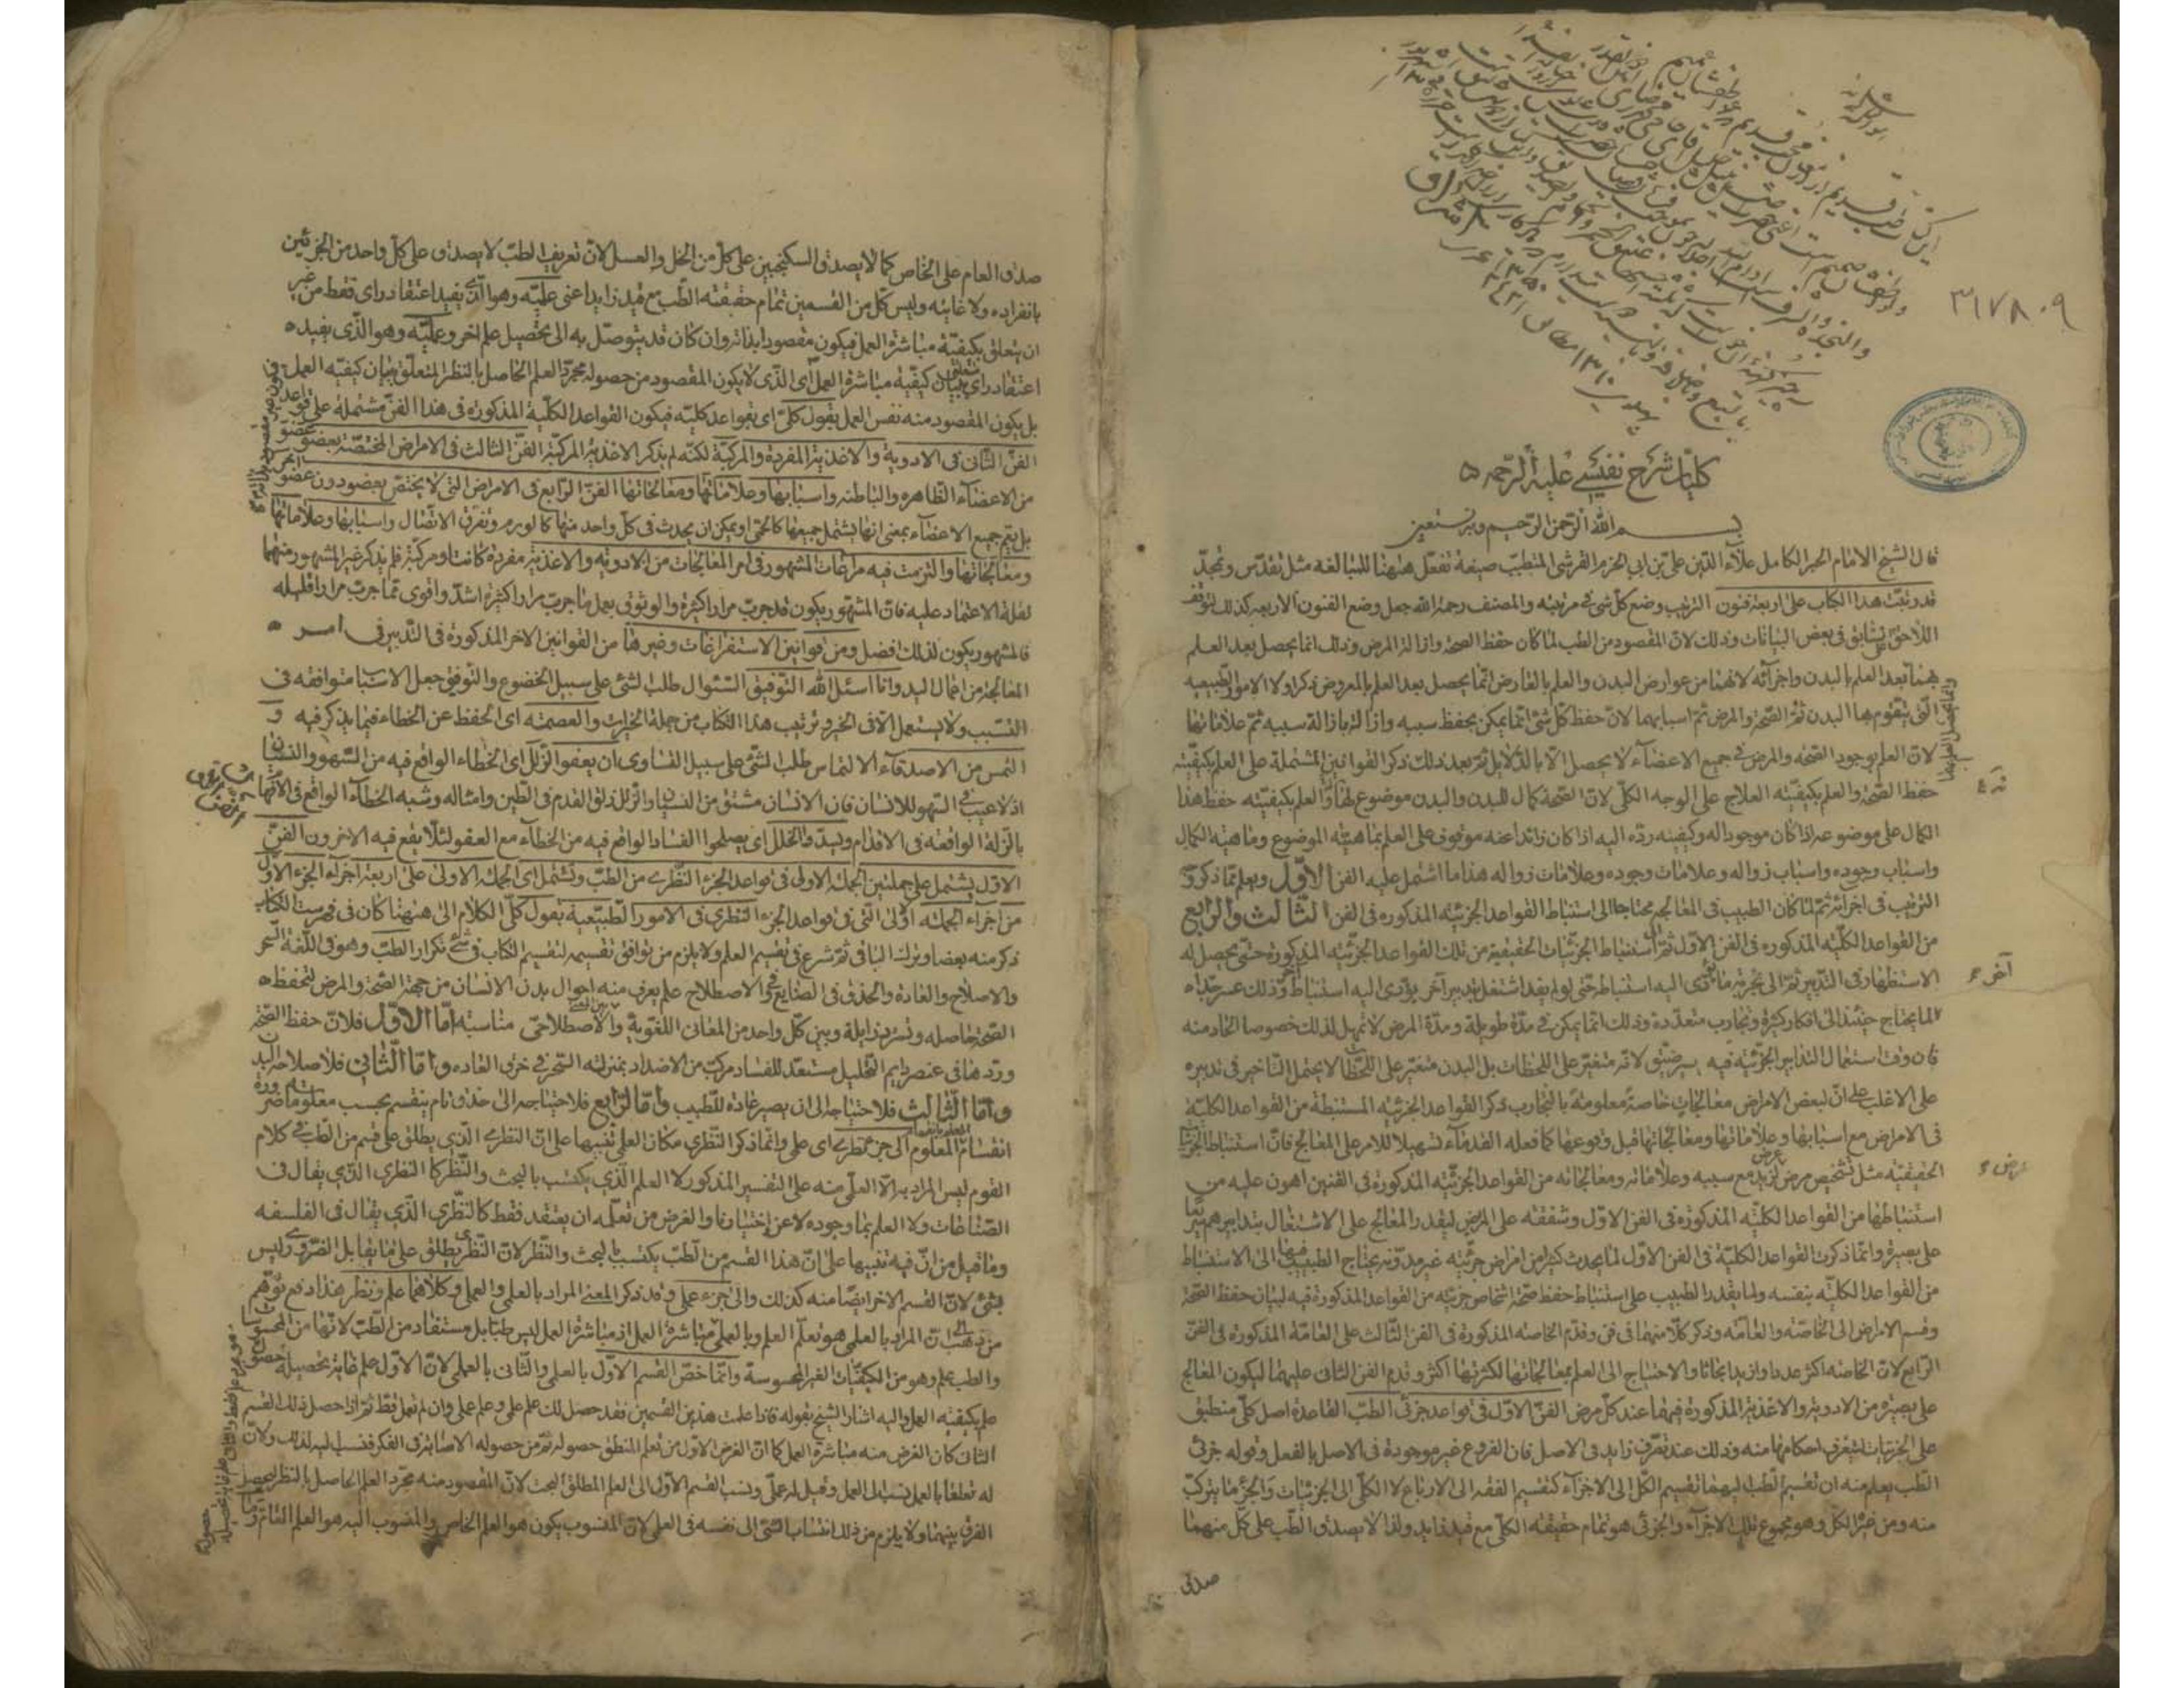 ٣١٧٨٠٩
كليات شرح نفيسى عليه الرحمه
بسم الله الرحمن الرحيم وبه نستعين
قال الشيخ الامام الحبر الكامل علاء الدين على بن ابى الحزم القرشى المتطبب صيغة تفعل ههنا للمبالغه مثل تقدس وتمجد
قد رتبت هذا الكتاب على اربعة فنون الترتيب وضع كل شئ فى مرتبته والمصنف رحمه الله جعل وضع الفنون الاربعه كذلك لتوقف
اللاحق على السابق فى بعض البيانات وذلك لان المقصود من الطب لما كان حفظ الصحة وازالة المرض وذلك انما يحصل بعد العلم
بهما بعد العلم بالبدن واجزائه لانهما من عوارض البدن والعلم بالعارض انما يحصل بعد العلم بالمعروض ذكر اولا الامور الطبيعيه
التى يتقوم بها البدن ثم الصحة والمرض ثم اسبابهما لان حفظ كل شئ انما يمكن بحفظ سببه وازالته بازالة سببه ثم علاماتها
لان العلم بوجود الصحه والمرض فى جميع الاعضاء لا يحصل الا بالدلايل ثم بعد ذلك ذكر القوانين المشتملة على العلم بكيفيته
حفظ الصحة والعلم بكيفيته العلاج على الوجه الكلى لان الصحة كمال للبدن والبدن موضوع لها والعلم بكيفيته حفظ هذا
الكمال على موضوعه اذا كان موجودا له وكيفيته رده اليه اذا كان زائدا عنه موقوف على العلم بماهيته الموضوع وماهيته الكمال
واسباب وجوده واسباب زواله وعلامات وجوده وعلامات زواله هذا ما اشتمل عليه الفن الاول ويعلم مما ذكر
الترتيب فى اجزائه ثم لما كان الطبيب فى المعالجه محتاجا الى استنباط القواعد الجزئيه المذكوره فى الفن الثالث والرابع
من القواعد الكليه المذكوره فى الفن الاول ثم استنباط الجزئيات الحقيقية من تلك القواعد الجزئيه المذكورة حتى يحصل له
الاستظهار فى التدبير ثم الى تجربة ما يؤدى اليه استنباطه حتى لو لم يفد اشتغل بتدبير آخر يؤدى اليه استنباط وذلك عسر جدا
لما يحتاج حينئذ الى افكار كثيرة وتجارب متعددة وذلك انما يمكن فى مدة طويلة ومدة المرض لا تمهل لذلك خصوصا الحاد منه
فان وقت استعمال التدابير الجزئيه فيه يسير ضيق لانه متغير على اللحظات بل البدن متغير على اللحظات لا يحتمل التاخير فى تدبيره
على الاغلب على ان لبعض الامراض معالجات خاصة معلومة بالتجارب ذكر القواعد الجزئيه المستنبطة من القواعد الكليه
فى الامراض مع اسبابها وعلاماتها ومعالجاتها قبل وقوعها كما فعله القدماء تسهيلا للامر على المعالج فان استنباط الجزئيات
الحقيقيه مثل تشخيص مرض زيد مع سببه وعلاماته ومعالجاته من القواعد الجزئيه المذكورة فى الفنين اهون عليه من
استنباطها من القواعد الكليه المذكورة فى الفن الاول وشفقه على المرضى ليقدر المعالج على الاشتغال بتدابيرهم
على بصيرة وانما ذكرت القواعد الكلية فى الفن الاول لما يحدث كثير من امراض جزئيه غير مدونه يحتاج الطبيب فيها الى الاستنباط
من القواعد الكليه بنفسه ولما يقدر الطبيب على استنباط حفظ صحة اشخاص جزئيه من القواعد المذكورة فيه لبيان حفظ الصحة
وقسم الامراض الى الخاصه والعامه وذكر كلا منهما فى فن وقدم الخاصه المذكورة فى الفن الثالث على العامة المذكورة فى الفن
الرابع لان الخاصه اكثر عددا وازيد ابحاثا والاحتياج الى العلم بمعالجاتها لكثرتها اكثر وقدم الفن الثانى عليهما ليكون المعالج
على بصيره من الادوية والاغذية المذكورة فيهما عند كل مرض الفن الاول فى قواعد جزئى الطب القاعدة اصل كلى منطبق
على الجزئيات لتعرف احكامها منه وذلك عند تعرف زايد فى الاصل فان الفروع غير موجودة فى الاصل بالفعل وقوله جزئى
الطب يعلم منه ان تقسيم الطب اليهما تقسيم الكل الى الاجزاء كتقسيم الفقه الى الارباع لا الكلى الى الجزئيات والجزء ما يتركب
منه ومن غيره الكل وهو مجموع تلك الاجزاء والجزئى هو تمام حقيقته الكلى مع قيد زايد ولذا لا يصدق الطب على كل منهما
صدق
صدق العام على الخاص كما لا يصدق السكنجبين على كل من الخل والعسل لان تعريف الطب لا يصدق على كل واحد من الجزئين
بانفراده ولا غايته وليس كل من القسمين تمام حقيقته الطب مع قيد زايد اعنى علميه وهو الذى يفيد اعتقاد راى فقط من غير
ان يتعلق بكيفية مباشرة العمل فيكون مقصودا بذاته وان كان قد يتوصل به الى تحصيل علم اخر وعمليه وهو الذى يفيد
اعتقاد راى كيفية مباشرة العمل اى الذى لا يكون المقصود من حصوله مجرد العلم الحاصل بالنظر المتعلق ببيان كيفيه العمل
بل يكون المقصود منه نفس العمل بقول كلى اى بقواعد كليه فيكون القواعد الكلية المذكوره فى هذا الفن مشتملة على قواعد
الفن الثانى فى الادوية والاغذية المفردة والمركبة لكنه لم يذكر الاغذية المركبة الفن الثالث فى الامراض المختصة بعضو عضو
من الاعضاء الظاهره والباطنه واسبابها وعلاماتها ومعالجاتها الفن الرابع فى الامراض التى لا يختص بعضو دون عضو
بل يعم جميع الاعضاء بمعنى انها يشتمل جميعها كالحمى او يمكن ان يحدث فى كل واحد منها كالورم وتفرق الاتصال واسبابها وعلاماتها
ومعالجاتها والتزمت فيه مراعات المشهور فى امر المعالجات من الادويه والاغذية مفردة كانت او مركبة فلم يذكر غير المشهور منهما
لقلة الاعتماد عليه فان المشهور يكون قد جرب مرارا كثيرة والوثوق بعمل ما جرب مرارا كثيرة اشد واقوى مما جرب مرارا قليله
فالمشهور يكون لذلك افضل ومن قوانين الاستفراغات وغيرها من القوانين الاخر المذكورة فى التدبير فى امر
المعالجة من اعمال اليد وانا اسئل الله التوفيق السئوال طلب لشئ على سبيل الخضوع والتوفيق جعل الاسباب متوافقه فى
التسبب ولا يستعمل الا فى الخير وترتيب هذا الكتاب من جملة الخيرات والعصمة اى الحفظ عن الخطاء فيما يذكر فيه و
التمس من الاصدقاء الالتماس طلب الشئ على سبيل التساوى ان يعفوا الزلل اى الخطاء الواقع فيه من السهو والنسيان
اذ لا عيب فى السهو للانسان فان الانسان مشتق من النسيان والزلل زلق القدم فى الطين وامثاله وشبه الخطاء الواقع فى الافهام
بالزلة الواقعه فى الاقدام ويسد والخلل اى يصلحوا الفساد الواقع فيه من الخطاء مع العفو لئلا يقع فيه الاخرون الفن
الاول يشتمل على جملتين الجملة الاولى فى قواعد الجزء النظرى من الطب وتشتمل اى الجملة الاولى على اربعة اجزاء الجزء الاول
من اجزاء الجملة الاولى التى فى قواعد الجزء النظرى فى الامور الطبيعية يقول كل الكلام الى ههنا كان فى فهرست الكتاب
ذكر منه بعضا وترك الباقى ثم شرع فى تقسيم العلم ولا يلزم من توافق تقسيمه لتقسيم الكتاب فى شئ تكرار الطب وهو فى اللغة السحر
والاصلاح والعادة والحذق فى الصنايع وفى الاصطلاح علم يعرف منه احوال بدن الانسان من جهة الصحة والمرض لتحفظ
الصحة حاصله وتسترد زايلة وبين كل واحد من المعانى اللغوية والاصطلاحى مناسبة اما الاول فلان حفظ الصحة
وردها فى عنصر دايم التحليل مستعد للفساد مركب من الاضداد بمنزلة السحر فى خرق العاده واما الثانى فلاصلاحه البدن
واما الثالث فلاحتياجه الى ان يصير عادة للطبيب واما الرابع فلاحتياجه الى حذق تام ينقسم بحسب معلوماته ضرورة
انقسام العلم بانقسام المعلوم الى جزء نظرى اى علمى وانما ذكر النظرى مكان العلمى تنبيها على ان النظرى الذى يطلق على قسم من الطب فى كلام
القوم ليس المراد به الا العلمى منه على التفسير المذكور لا العلم الذى يكتسب بالبحث والنظر كالنظرى الذى يقال فى
الصناعات ولا العلم بما وجوده لا عن اختيارنا والغرض من تعلمه ان يعتقد فقط كالنظرى الذى يقال فى الفلسفه
وما قيل من ان فيه تنبيها على ان هذا القسم من الطب يكتسب بالبحث والنظر لان النظرى يطلق على ما يقابل الضرورى وليس
بشئ لان القسم الاخر ايضا منه كذلك والى جزء عملى وقد ذكر المعنى المراد بالعلمى والعملى وكلاهما علم ونظر هذا دفع توهم
من ذهب الى ان المراد بالعلمى هو تعلم العلم وبالعملى مباشرة العمل اذ مباشرة العمل ليس طبا بل مستفاد من الطب لانها من المحسوسات
والطب علم وهو من الكيفيات الغير المحسوسة وانما خص القسم الاول بالعلمى والثانى بالعملى لان الاول علم غايته تحصيله
علم بكيفيه العمل واليه اشار الشيخ بقوله فاذا علمت هذين القسمين فقد حصل لك علم علمى وعلم عملى وان لم تعمل قط ثم اذا حصل ذلك القسم
الثانى كان الغرض منه مباشرة العمل كما ان الغرض الاول من تعلم المنطق حصوله ثم من حصوله الاصابة فى الفكر فنسب اليه لذلك ولان
له تعلقا بالعمل نسب الى العمل وقيل له عملى ونسب القسم الاول الى العلم المطلق البحت لان المقصود منه مجرد العلم الحاصل بالنظر ليحصل
الفرق بينهما ولا يلزم من ذلك انتساب الشئ الى نفسه فى العلمى لان المنسوب يكون هو العلم الخاص والمنسوب اليه هو العلم العام